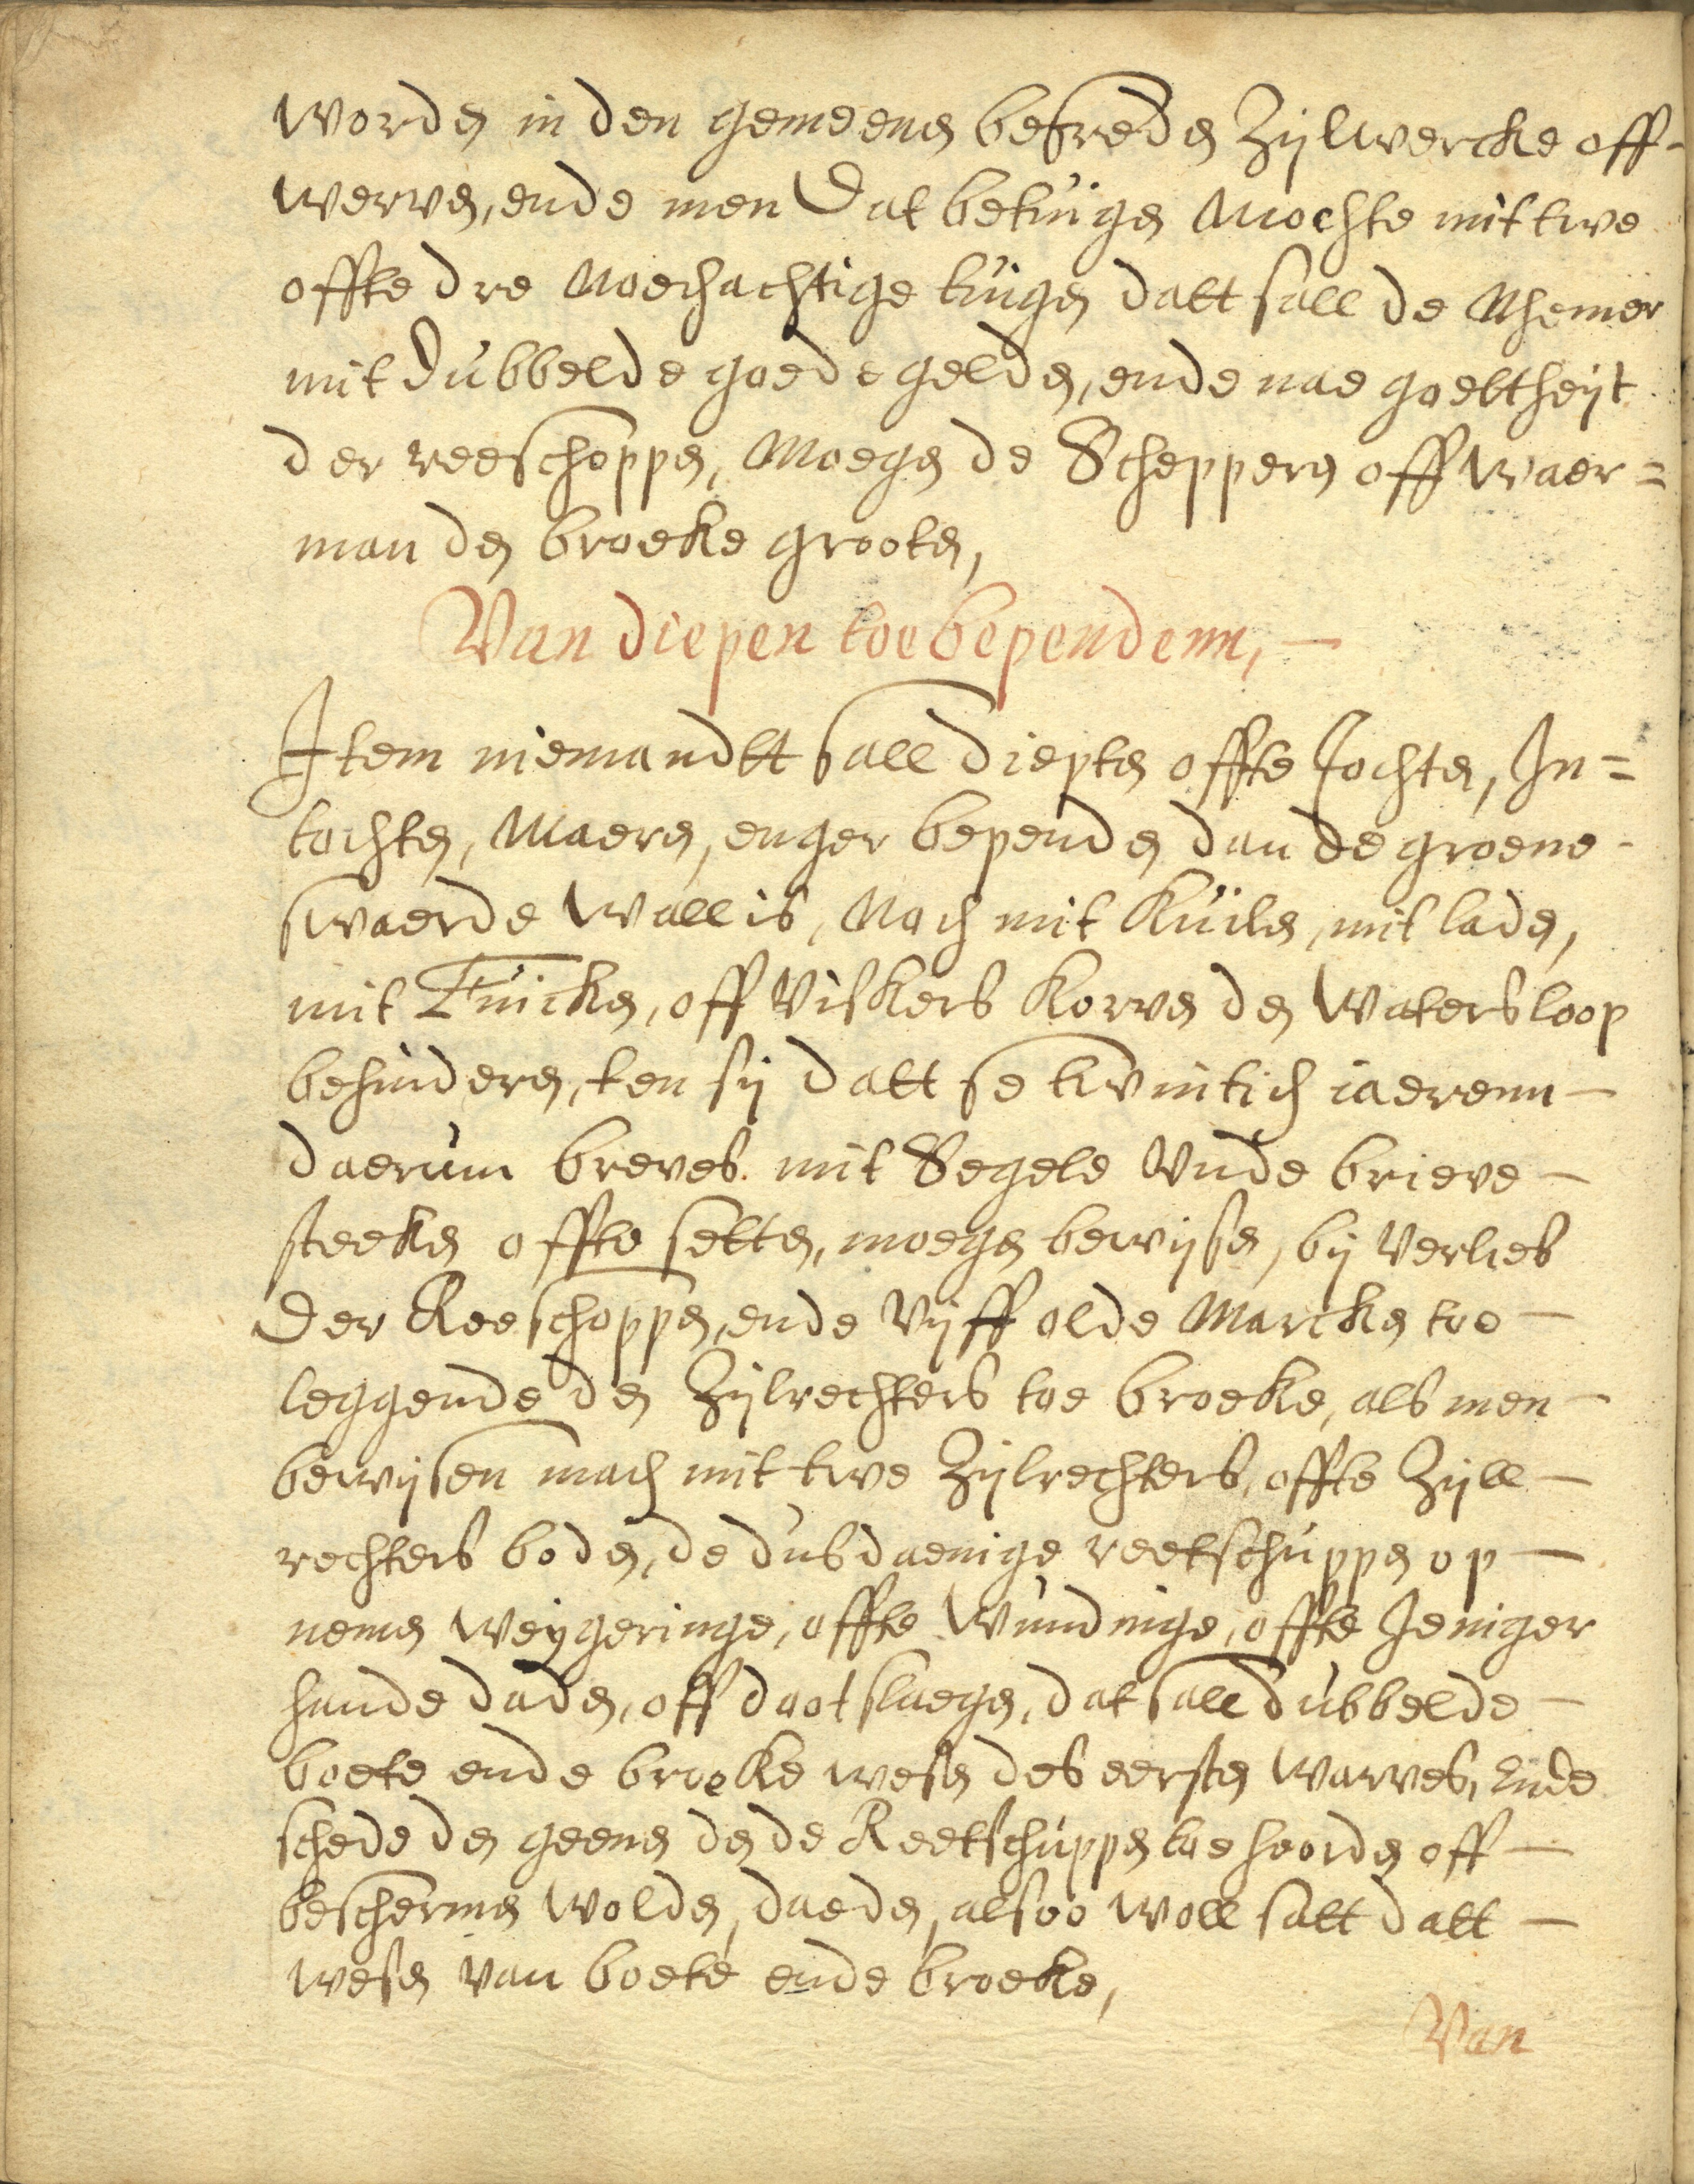 worden in den gemeenen befreden Zijlwercke off-
werven, ende men Dat betuigen Mochte mit twe
offte dre Noechachtige tuigen datt sall de Nhemer
mit Dubbelde goede gelden, ende nae goeltheijt
der reeschoppen, Moegen de Scheppers off waer=
man den broeke grooten,
Van diepen toe bependenn, —
Item niemandtt sall diepten offte Tochten, In=
tochten, Maeren, enger bependen dan de groene -
swaerde wall is, Noch mit Kuilen, mit laden,
mit Fuicken, off Viskers Korven den Watersloop
behinderen, ten sij datt se twintich iaerenn —
daerum breves. mit Segele Vnde brieve —
steeken offte setten, moegen bewijsen, bij Verlies
Der Reeschoppen, ende Vijff olde Marcken toe —
leggende den Zijlrechters toe broeke, als men —
bewijsen mach mit twe Zijlrechters, offte Zijll —
rechters boden, de dusdaenige reetschuppen op —
nemen weijgeringe, offte wundinge, offte Jeniger
hande daden, off dootslaegen, dat sall dubbelde —
boete ende broeke wesen des eersten warves, Ende
schede den geenen den de Reetschuppen toe hoorden off —
beschermen wolden, daeden, alsoo woll sall datt —
wesen van boete ende broeke,
Van